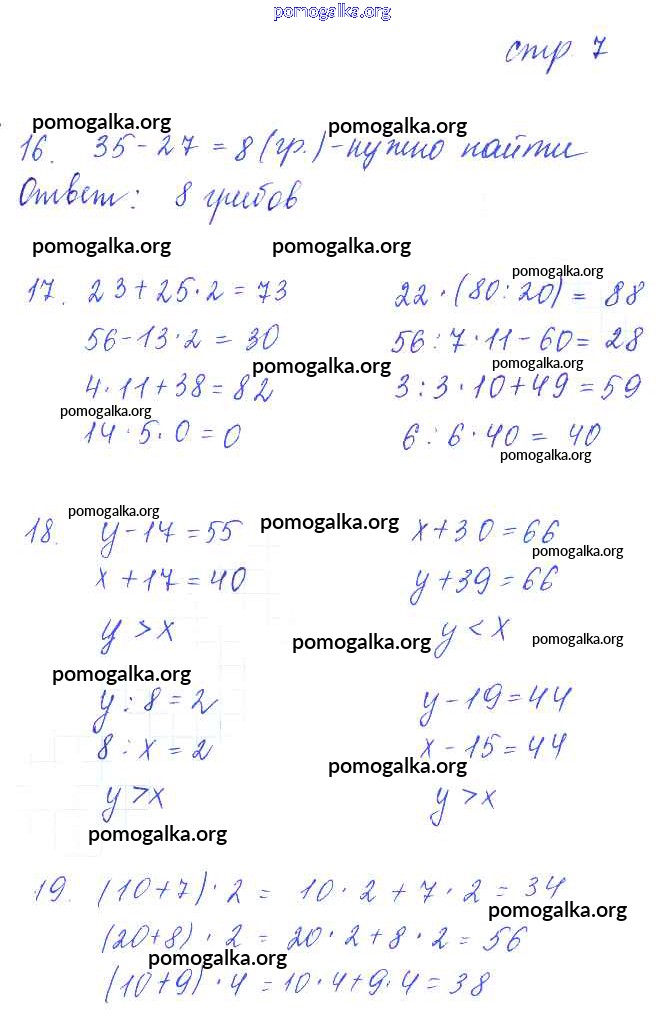 pomogalka.org
стр 7
pomogalka.org pomogalka.org
16. 35 - 27 = 8 (гр.) - нужно найти
Ответ: 8 грибов
pomogalka.org pomogalka.org
pomogalka.org
17. 23 + 25 · 2 = 73 22 · (80 : 20) = 88
56 - 13 · 2 = 30 56 : 7 · 11 - 60 = 28
pomogalka.org pomogalka.org
4 · 11 + 38 = 82 3 : 3 · 10 + 49 = 59
pomogalka.org
14 · 5 · 0 = 0 6 : 6 · 40 = 40
pomogalka.org
pomogalka.org pomogalka.org
18. y - 17 = 55 x + 30 = 66
pomogalka.org
x + 17 = 40 y + 39 = 66
y > x y < x
pomogalka.org pomogalka.org
pomogalka.org
y : 8 = 2 y - 19 = 44
8 : x = 2 x - 15 = 44
pomogalka.org
y > x y > x
pomogalka.org
19. (10 + 7) · 2 = 10 · 2 + 7 · 2 = 34
pomogalka.org
(20 + 8) · 2 = 20 · 2 + 8 · 2 = 56
pomogalka.org
(10 + 9) · 4 = 10 · 4 + 9 · 4 = 38